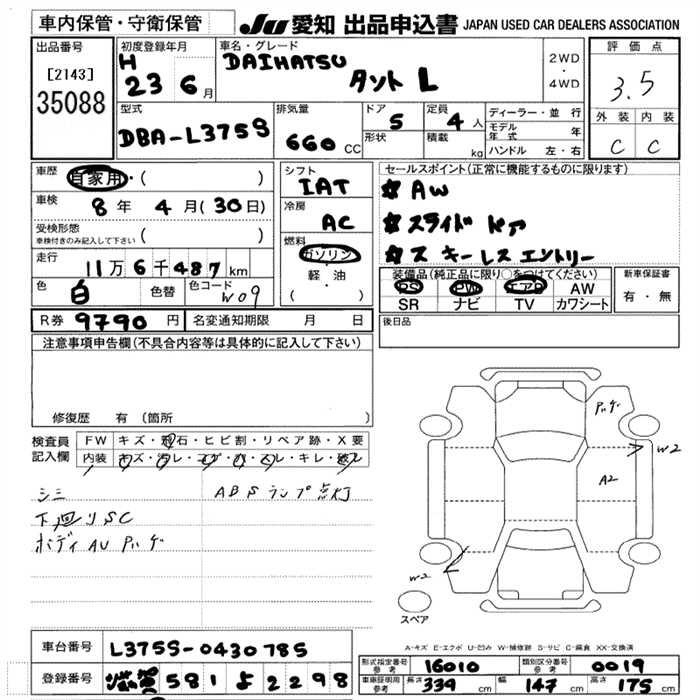 車内保管・守衛保管
JU 愛知 出品申込書 JAPAN USED CAR DEALERS ASSOCIATION
出品番号
[2143]
35088
初度登録年月
H 23 6月
車名・グレード
DAIHATSU
タント L
2WD
・
4WD
評価点
3.5
外装 内装
C C
型式
DBA-L375S
排気量
660 CC
ドア
5
形状
定員
4人
積載
kg
ディーラー・並行
モデル年式 年
ハンドル 左・右
車歴
自家用・( )
車検
8年 4月(30日)
受検形態
車検付きのみ記入して下さい ( )
走行
11万6千487km
色
白
色替
色コード
W09
シフト
IAT
冷房
AC
燃料
ガソリン
・
軽・油
( )
セールスポイント(正常に機能するものに限ります)
☆ AW
☆ スライド ドア
☆ スキーレスエントリー
装備品(純正品に限り○をつけてください)
PS PW エアB AW
SR ナビ TV カワシート
新車保証書
有・無
R券 9790円
名変通知期限 月 日
後日品
注意事項申告欄(不具合内容等は具体的に記入して下さい)
修復歴 有(箇所
検査員記入欄
FW キズ・飛石・ヒビ割・リペア跡・X要
内装 キズ・汚レ・コゲ・穴・スレ・キレ・破レ
シミ
ABSランプ点灯
下廻りSC
ボディAUハゲ
ハゲ
W2
A2
W2
スペア
A-キズ E-エクボ U-凹み W-補修跡 S-サビ C-腐食 XX-交換済
車台番号 L375S-0430785
登録番号 滋賀 581 よ 2298
形式指定番号参考 16010
類別区分番号参考 0019
車庫証明用参考 長さ 339cm 幅 147cm 高さ 175cm